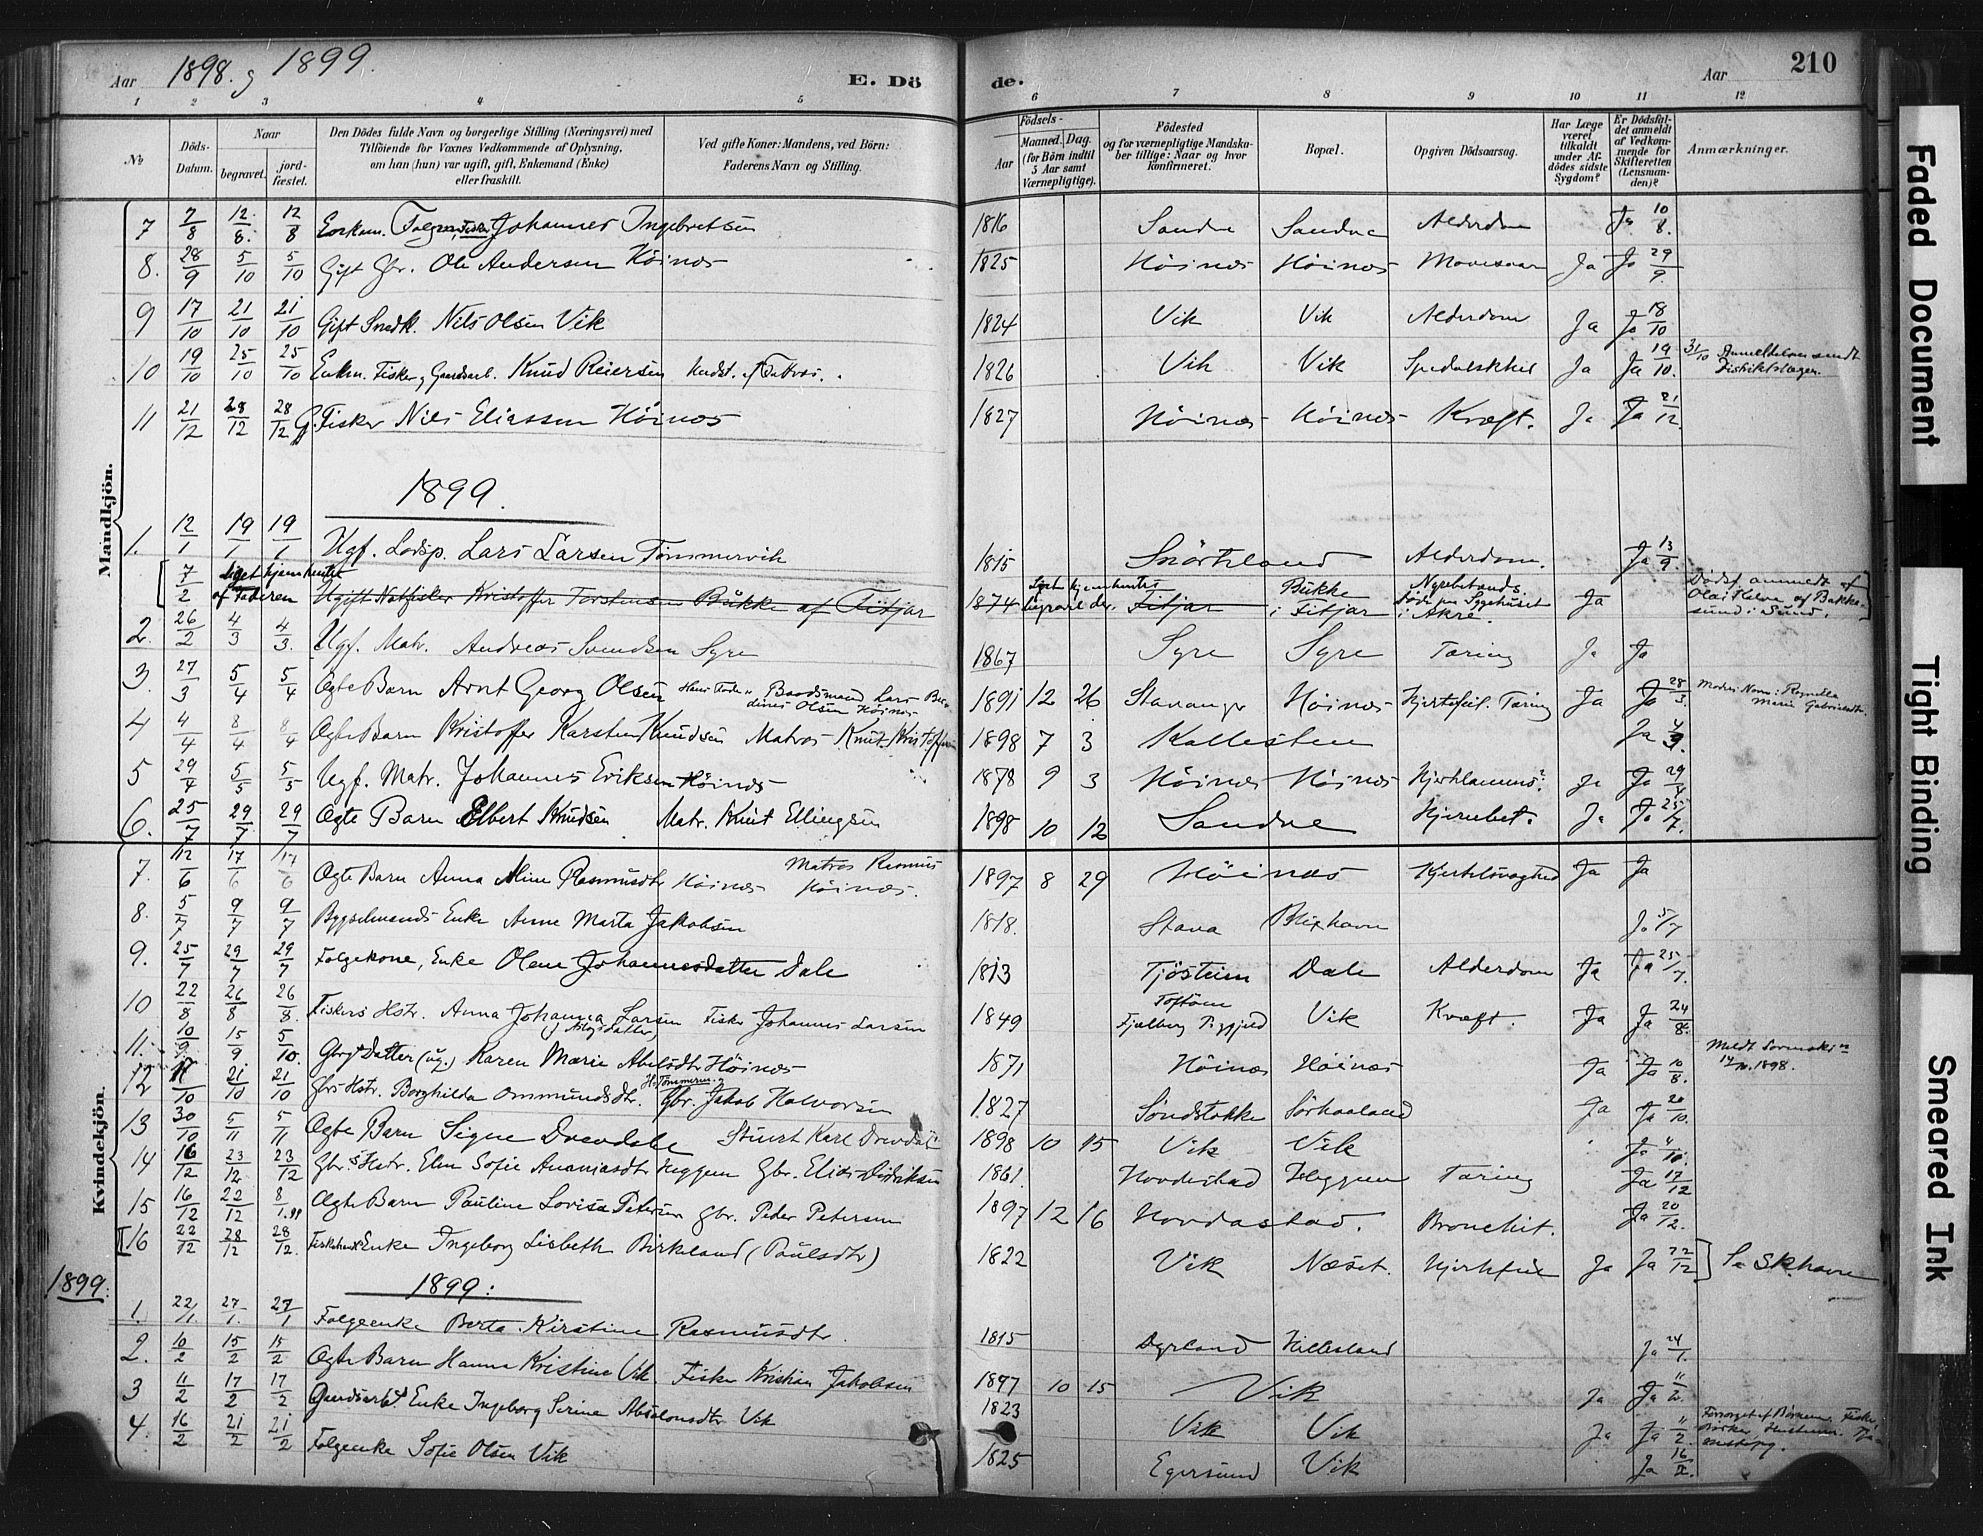 Aar 1898 og 1899.
E. Dö
de.
Aar
210
1 2 3 4 5 6 7 8 9 10 11 12
№
Döds-Datum.
Naar
begravet.
jord-fæstet.
Den Dödes fulde Navn og borgerlige Stilling (Næringsvei) med
Tilföiende for Voxnes Vedkommende af Oplysning,
om han (hun) var ugift, gift, Enkemand (Enke)
eller fraskilt.
Ved gifte Koner: Mandens, ved Börn:
Faderens Navn og Stilling.
Födsels-
Aar
Maaned. Dag.
(for Börn indtil 5 Aar samt Værnepligtige).
Födested
og for værnepligtige Mandskaber tillige: Naar og hvor Konfirmeret.
Bopæl.
Opgiven Dödsaarsag.
Har Læge været tilkaldt under Afdödes sidste Sygdom?
Er Dödsfaldet anmeldt af Vedkommende for Skifteretten (Lensmanden)?
Anmærkninger.
Mandkjön.
7 7/8 12/8. 12/8 Enkem. Folgem, Fisker Johannes Ingebretsen 1816 Sande Sande Alderdom Ja 10/8.
8. 28/9 5/10 5/10 Gift Gbr. Ole Andersen Höines 1825 Höines Höines Ja Ja 29/9.
9 17/10 21/10 21/10 Gift Snedk. Nils Olsen Vik 1824 Vik Vik Alderdom Ja Ja 18/10
10 19/10 25/10 25/10 Enkm. Fisker og Gaardarb. Knud Reiersen 1826 Vik Vik Spedalskhed Ja Ja 19/10. 31/10 Anmeldelsen sendt Distriktslægen.
11 21/12 28/12 28/12 G. Fisker Nils Eliassen Höines 1827 Höines Höines Kræft. Ja Ja 21/12.
1899.
1. 12/1 19/1 19/1 Ugf. Lodsp. Lars Larsen Tömmervik 1815 Snörteland Alderdom. Ja 13/9.
7/2 Liget hjemhentet af Faderen Ugift Notfisker Kristoffer Torstensen Bukke af Fitjar 1874 Liget hjemhentes Fitjar Bukke i Fitjar döde paa Sygehuset i Akre. Ja Dödsf. anmeldt af
2. 26/2 4/3 4/3. Ugf. Matr. Andreas Svendsen Syre 1867 Syre Syre Tæring Ja Ja
3. 27/3 5/4 5/4 Ægte Barn Arnt Georg Olsen Baadsmand Lars Olsen Höines 1891 12 26 Stavanger Höines Hjertefeil. Tæring Ja Ja 28/3. Modres Navn:
4 4/4 8/4 8/4 Ægte Barn Kristoffer Karsten Knudsen Matros Knut Kristoffersen 1898 7 3 Kallesten Ja
5 29/4 5/5 5/5 Ugf. Matr. Johannes Eriksen Höines 1878 9 3 Höines Höines Ja Ja 29/4
6. 25/7 29/7 29/7 Ægte Barn Elbert Knudsen Matr. Knut Ellingsen 1898 10 12 Sandve Hjernebet. Ja Ja 25/7.
Kvindekjön.
7. 12/6 17/6 17/6 Ægte Barn Anna Aline Rasmusdtr Höines Matros Rasmus Höines. 1897 8 29 Höines Ja Ja
8. 5/7 9/7 9/7 Bygselmands Enke Anne Marta Jakobsen 1818. Stava Blixhavn Ja 5/7
9. 25/7 29/7 29/7 Folgekone, Enke Olene Johannesdatter Dale 1813 Tjöstem Dale Alderdom Ja Ja 25/7.
10 22/8 26/8 26/8. Fiskers Hstr. Anna Johanna Larsen Fisker Johannes Larsen 1849 Vik Kræft. Ja Ja 24/8.
11. 10/9 15/9 5/10. Gbrs Datter (ug.) Karen Marie Abelsdtr Höines 1871 Höines Höines Ja Ja 10/8. 1898.
12 17/10 21/10 21/10 Gbrs Hstr. Borghilda Ommundsdtr. Gbr. Jakob Halvorsen 1827 Söndstokke Sörhaaland Ja Ja 20/10.
13 30/10 5/11 5/11 Ægte Barn Signe Drevdale Stuert Karl Drevdal 1898 10 15 Vik Vik Ja
14 16/12 23/12 23/12 Gbr.s Hstr. Elen Sofie Ananiasdtr Heggem Gbr. Elias Didriksen 1861. Hovdestad Heggem Tæring Ja 17/12
15 16/12 22/12 8/1.99 Ægte Barn Pauline Lovise Petersen Gbr. Peder Petersen 1897 12 16 Hovdastad. Bronchit. Ja 20/12.
16 22/12 28/12 28/12. Enke Ingeborg Lisbeth Birkeland (Paulsdtr) 1822 Vik Næset. Hjertefeil Ja Ja 22/12 Se Skhavn
1899: 1899:
1. 22/1. 27/1. 27/1 Folgeenke Berta Kirstine Rasmusdtr. 1815 Dyrland Hillesland Ja 24/1.
2. 10/2 15/2 15/2 Ægte Barn Hanna Kristine Vik. Fisker Kristian Jakobsen 1897 10 15 Vik Ja Ja 11/2.
3 11/2 17/2 17/2 Gaardsarb.s Enke Ingeborg Serine Absalonsdtr Vik 1823 Vik Vik Ja Ja 11/2.
4. 16/2 21/2 21/2 Folgeenke Sofie Olsen Vik 1825 Egersund Vik Ja
Faded Document
Tight Binding
Smeared Ink